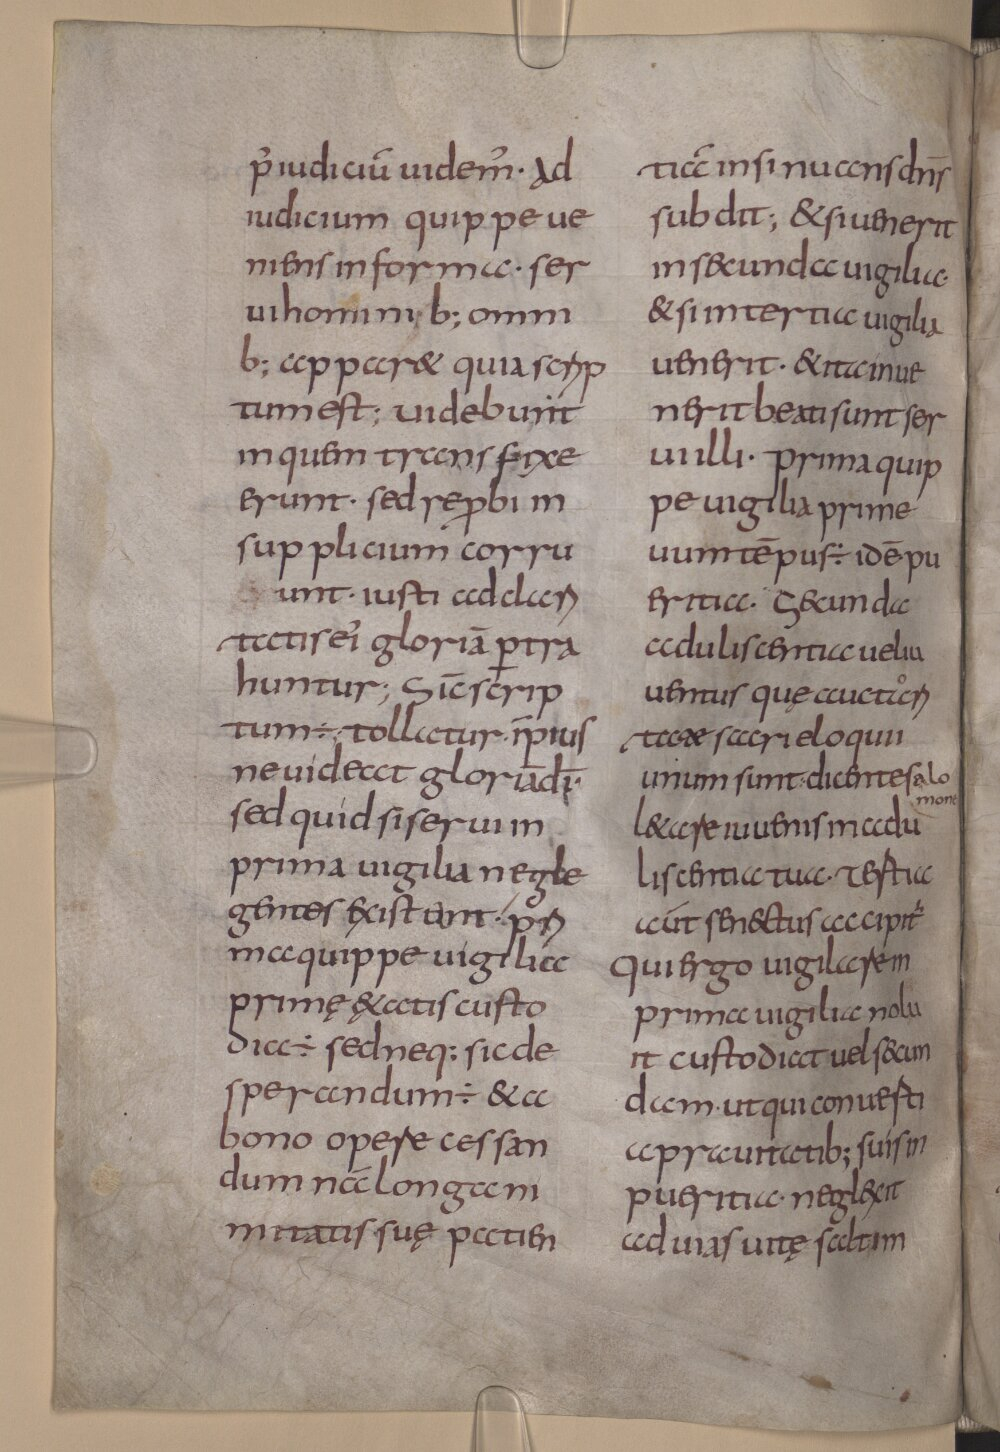 p᷒ iudiciū uidem᷒. Ad
iudicium quippe ue
niens in forma. ser
ui homini b; omni
b; apparet quia scrip
tum est; uidebunt
in quem transfixe
erunt. sed reꝓbi in
supplicium corru
unt. iusti ad clar
tatis ei᷒ gloriā ꝑtra
huntur; Sic̄ scrip
tum ÷. tollatur impius
ne uideat gloriā dī.
sed quid si serui in
prima uigilia negle
gentes existunt. pri
ma quippe uigilia
primę ętatis custo
dia ÷ sed neq; sic de
sperandum ÷ & a
bono opere cessan
dum nā longani
mitatis suę patien
tiā insinuans dn̄s
subdit; & si uenerit
in secunda uigilia.
& si in tertia uigilia
uenerit. & ita inue
nerit beati sunt ser
ui illi. prima quip
pe uigilia prime
uum tēpus ÷ idē pu
eritia. Secunda
aduliscentia uel iu
uentus quę auctori
tate sacri eloquii
unum sunt. dicente salo
mone
letare iuuenis in adu
liscentia tua. Testia
aut̄ senectus accipit᷒
Qui ergo uigilarem
prima uigilia nolu
it custodiat uel secun
dam. ut qui conuerti
a prauitatib; suis in
pueritia. neglexit
ad uias uitę saltim